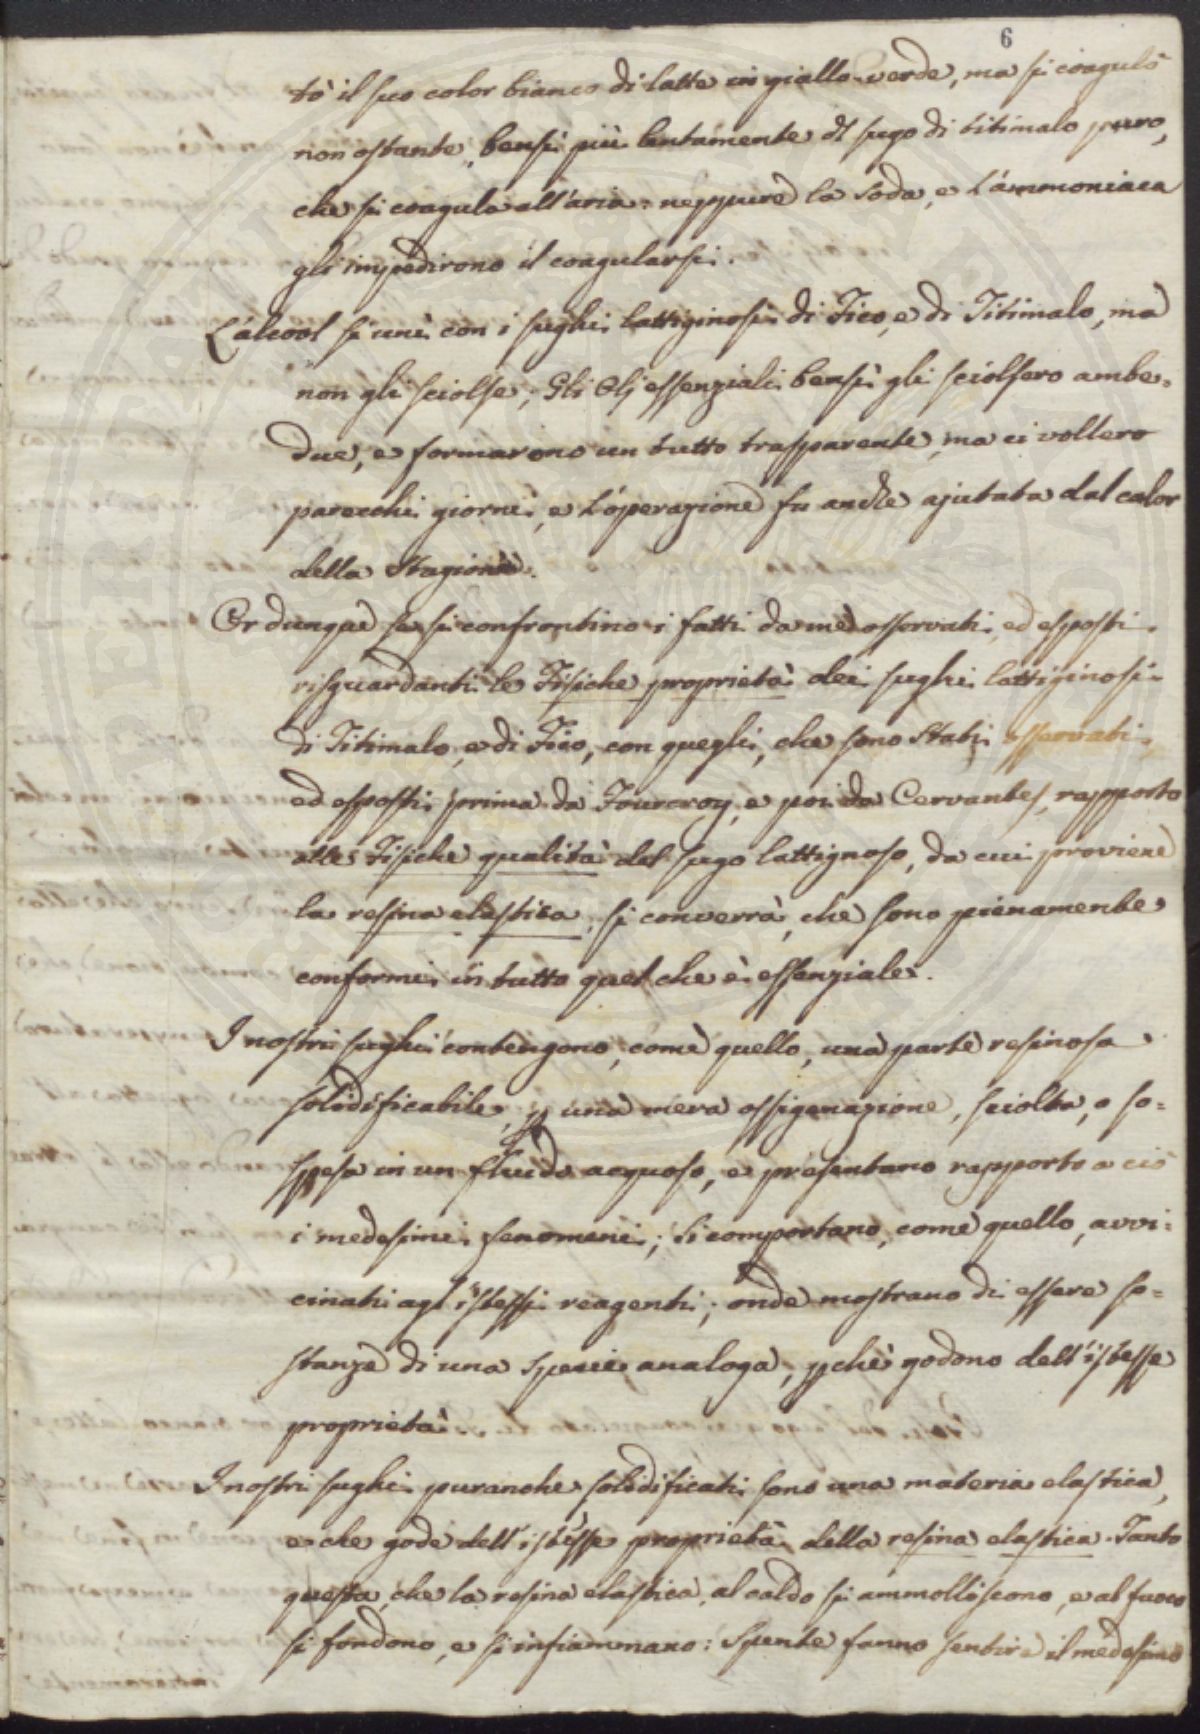 6
tò il suo color bianco di latte in giallo-verde, ma si coagulò
non ostante, bensì più lentamente dl sugo di titimalo puro,
che si coagula all'aria: neppure la soda, e l'ammoniaca
gli impedirono il coagularsi.
L'alcool si unì con i sughi lattiginosi di Fico, e di Titimalo, ma
non gli sciolse; Gli Olj essenziali bensì gli sciolsero ambe=
due, e formarono un tutto trasparente, ma ci vollero
parecchi giorni, e l'operazione fu anche ajutata dal calor
della Stagione.
Or dunque se si confrontino i fatti da me osservati, ed esposti
risguardanti le Fisiche proprietà dei sughi lattiginosi
di Titimalo, e di Fico, con quegli, che sono stati osservati,
ed esposti prima da Fourcroy, e poi da Cervantes, rapporto
alle Fisiche qualità del sugo lattignoso, da cui proviene
la resina elastica, si converrà, che sono pienamente
conformi in tutto quel che è essenziale.
I nostri sughi contengono, come quello, una parte resinosa
solidificabile, p una mera ossigenazione, sciolta, o so=
spesa in un fluido acquoso, e presentano rapporto a ciò
i medesimi fenomeni; si comportano, come quello, avvi=
cinati agl'istessi reagenti; onde mostrano di essere so=
stanze di una specie analoga, pchè godono dell'istesse
proprietà.
I nostri sughi puranche solidificati sono una materia elastica,
e che gode dell'istesse proprietà della resina elastica. Tanto
questa, che la resina elastica, al caldo si ammolliscono, e al fuoco
si fondono, e si infiammano: Spente fanno sentire il medesimo